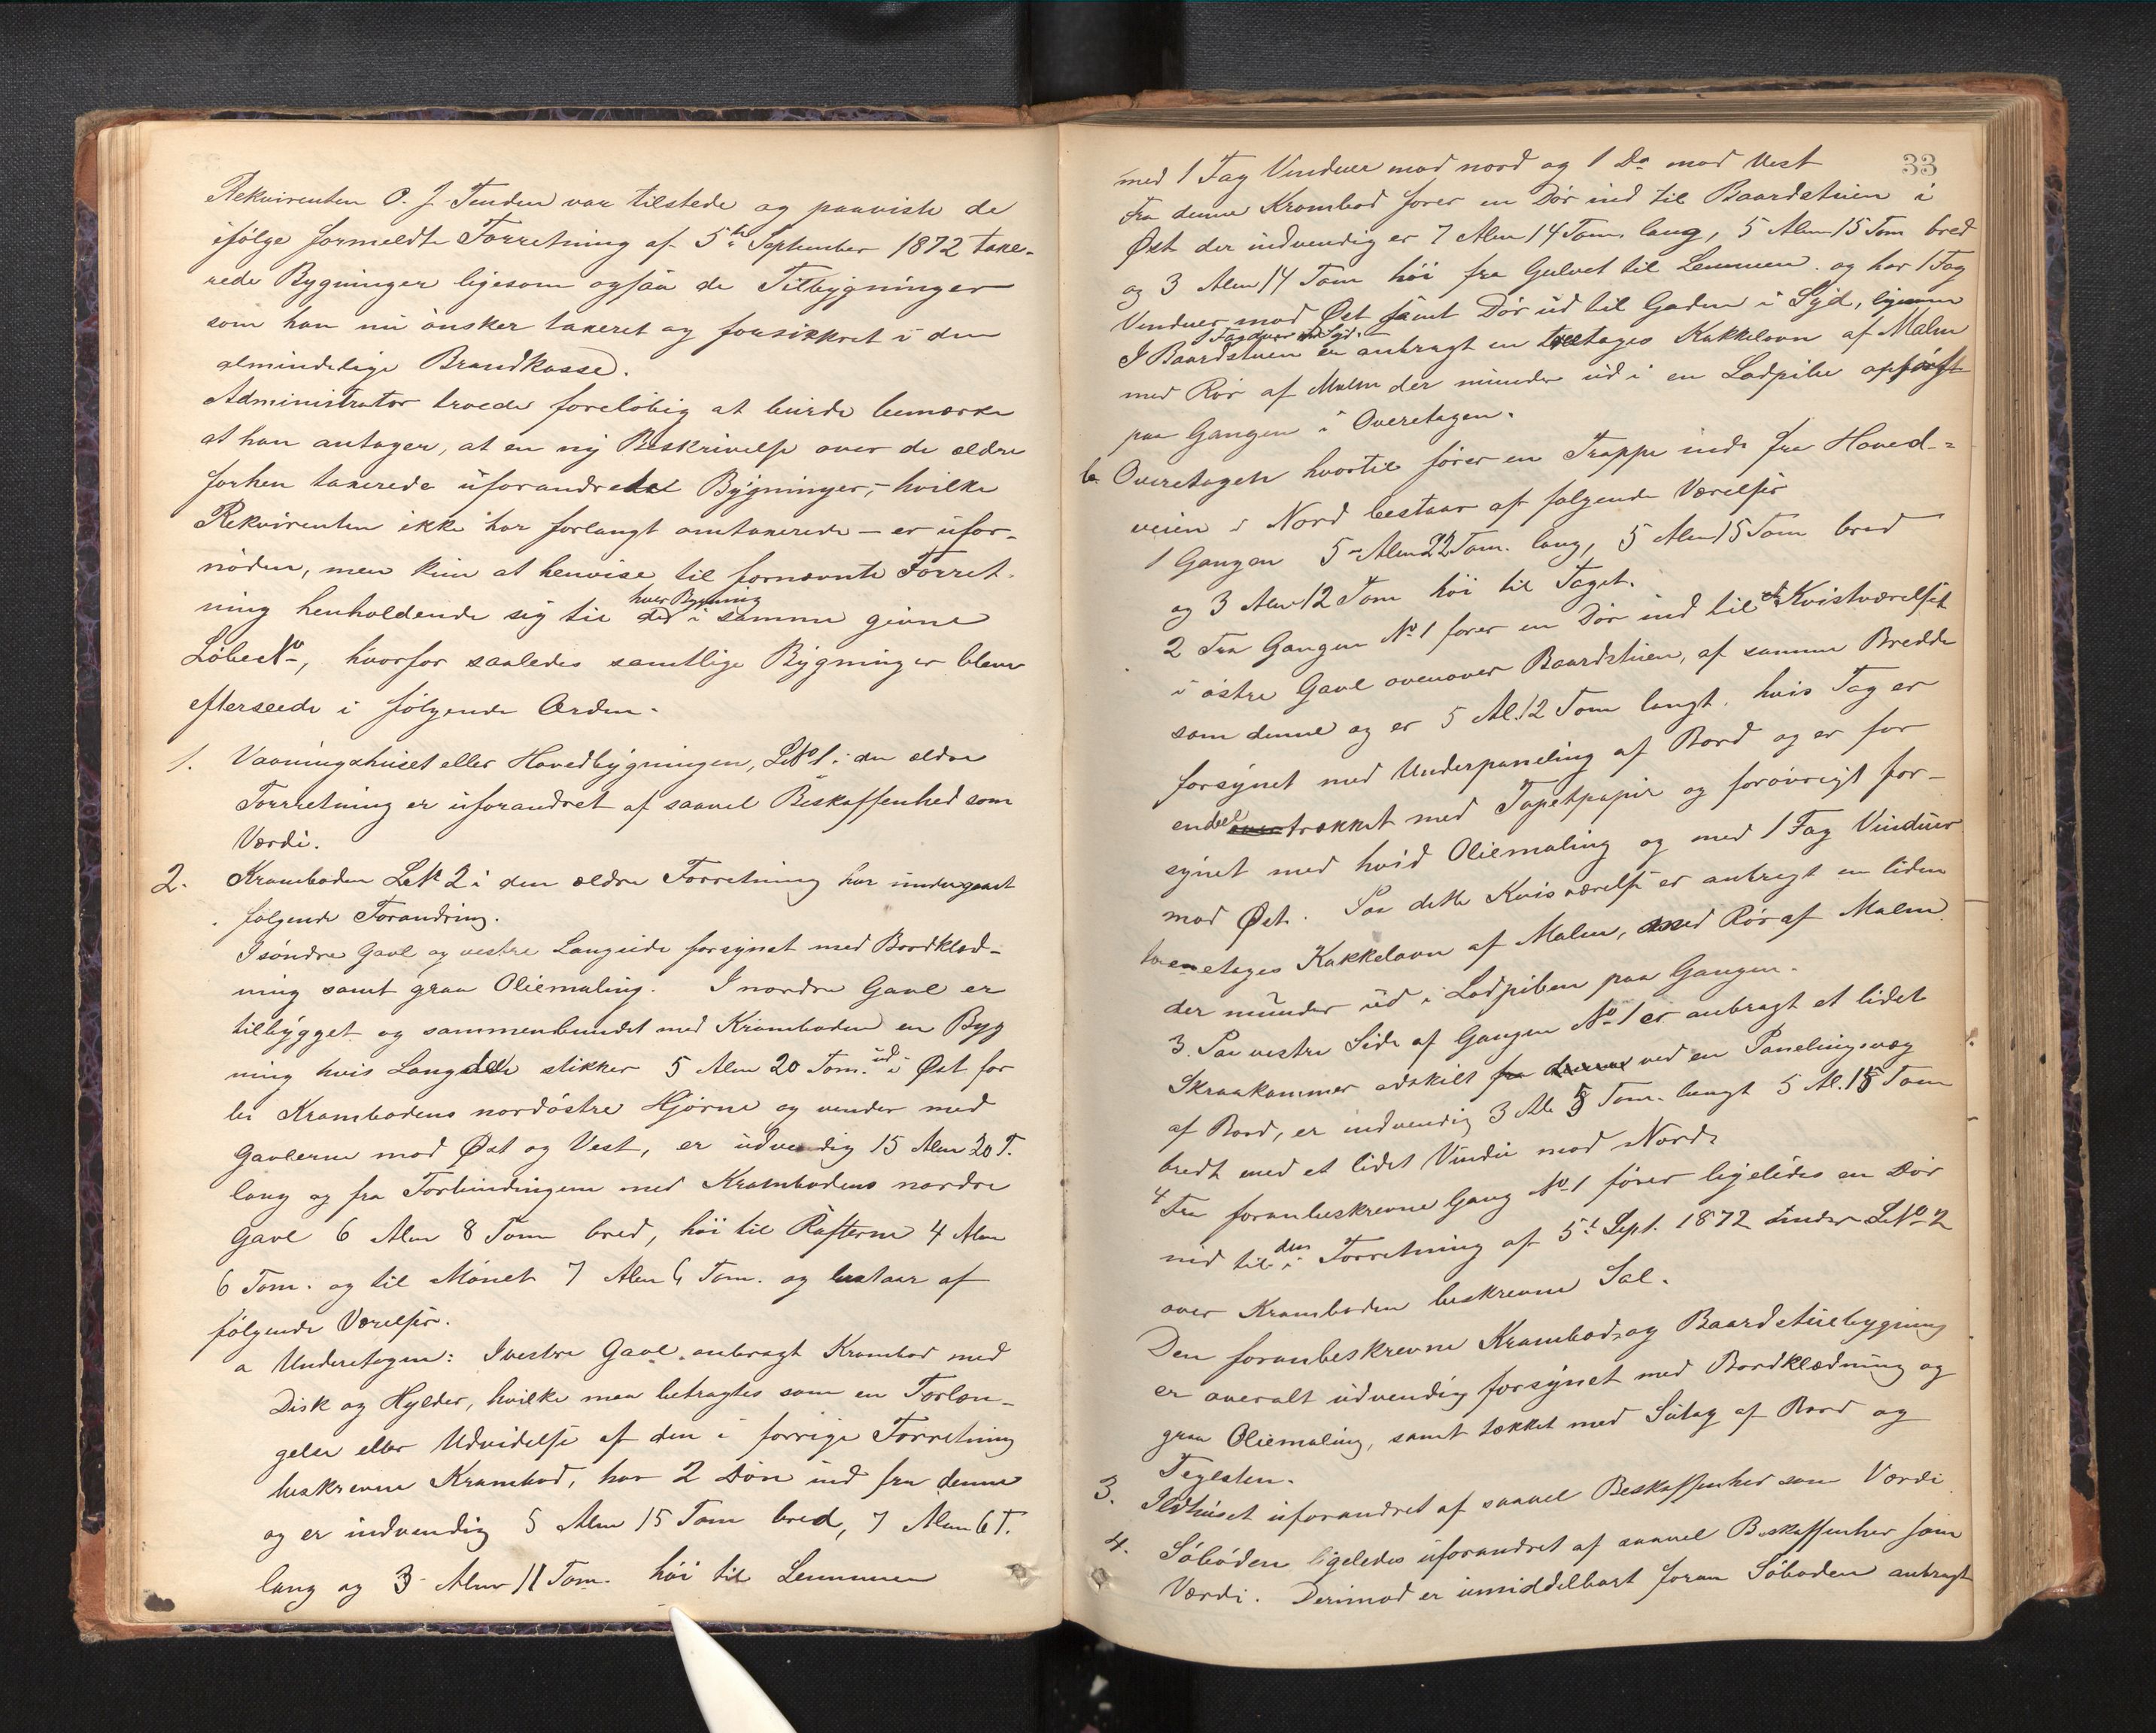 Rekvirenten O. J. Tenden var tilstede og paaviste de
ifølge formeldte Forretning af 5te September 1872 taxe-
rede Bygninger ligesom ogsaa de Tilbygninger
som han nu ønsker taxeret og forsikkret i den
almindelige Brandkasse.
Administrator troede foreløbig at burde bemærke
at han antager, at en ny Beskrivelse over de ældre
forhen taxerede uforandrede Bygninger, - hvilke
Rekvirenten ikke har forlangt omtaxerede - er ufor-
nøden, men kun at henvise til fornævnte Forret-
ning henholdende sig til det hver Bygning i samme givne
Løbe No, hvorfor saaledes samtlige Bygninger blev
efterseede i følgende Orden.
1. Vaaningshuset eller Hovedbygningen, L.No 1 i den ældre
Forretning er uforandret af saavel Beskaffenhed som
Værdi.
2. Kramboden L.No 2 i den ældre Forretning har undergaaet
følgende Forandring.
I søndre Gavl og vestre Langside forsynet med Bordklæd-
ning samt graa Oliemaling. I nordre Gavl er
tilbygget og sammenbundet med Kramboden en Byg
ning hvis Længde stikker 5 Alen 20 Tom. ud i Øst for
bi Krambodens nordøstre Hjørne og vender med
Gavlerne mod Øst og Vest, er udvendig 15 Alen 20 T.
lang og fra Forbindingen med Krambodens nordre
Gavl 6 Alen 8 Tom bred, høi til Rafterne 4 Alen
6 Tom. og til Mønet 7 Alen 6 Tom. og bestaar af
følgende Værelser.
a Underetagen: I vestre Gavl anbragt Krambod med
Disk og Hylder, hvilke maa betragtes som en Forlæn-
gelse eller Udvidelse af den i forrige Forretning
beskrevne Krambod, har 2 Døre ind fra denne
og er indvendig 5 Alen 15 Tom bred, 7 Alen 6 T.
lang og 3 Alen 11 Tom. høi til Lemmen
33
med 1 Fag Vinduer mod nord og 1 Do mod Vest
Fra denne Krambod fører en Dør ind til Baardstuen i
Øst der indvendig er 7 Alen 14 Tom. lang, 5 Alen 15 Tom bred
og 3 Alen 14 Tom høi fra Gulvet til Lemmen. og har 1 Fag
Vinduer mod Øst samt Dør ud til Gaden i Syd, ligesom
1 Fag Syd.
I Baardstuen er anbragt en toetages Kakkelovn af Malm
med Rør af Malm der munder ud i en Ladpibe opført
paa Gangen i Overetagen.
b. Overetagen hvortil fører en Trappe inde fra Hoved-
veien i Nord bestaar af følgende Værelser
1 Gangen 5 Alen 22 Tom. lang, 5 Alen 15 Tom bred
og 3 Alen 12 Tom høi til Taget.
2 Fra Gangen No 1 fører en Dør ind til et Kvistværelset
i østre Gavl ovenover Baardstuen, af samme Bredde
som denne og er 5 Al. 12 Tom langt, hvis Tag er
forsynet med Underpaneling af Bord og er for
endeel trækket med Tapetpapir og forøvrigt for-
synet med hvid Oliemaling og med 1 Fag Vinduer
mod Øst. Paa dette Kvisværelse er anbragt en liden
toenetages Kakkelovn af Malm, med Rør af Malm
der munder ud i Ladpiben paa Gangen.
3. Paa vestre Side af Gangen No 1 er anbragt et lidet
Skraakammer adskilt fra ved en Panelingsvæg
af Bord, er indvendig 3 Al. 5 Tom. langt 5 Al. 15 Tom
bredt med et lidet Vindu mod Nord.
4 Fra foranbeskrevne Gang No 1 fører ligeledes en Dør
ned til den i Forretning af 5te Sept. 1872 under L.No 2
over Kramboden beskrevne Sal.
Den foranbeskrevne Krambod- og Baardstuebygning
er overalt udvendig forsynet med Bordklædning og
graa Oliemaling, samt tækket med Sutag af Bord og
Teglsten.
3. Ildhuset uforandret af saavel Beskaffenhed som Værdi
4. Søboden ligeledes uforandret af saavel Beskaffenhed som
Værdi. Derimod er umiddelbart foran Søboden anbragt